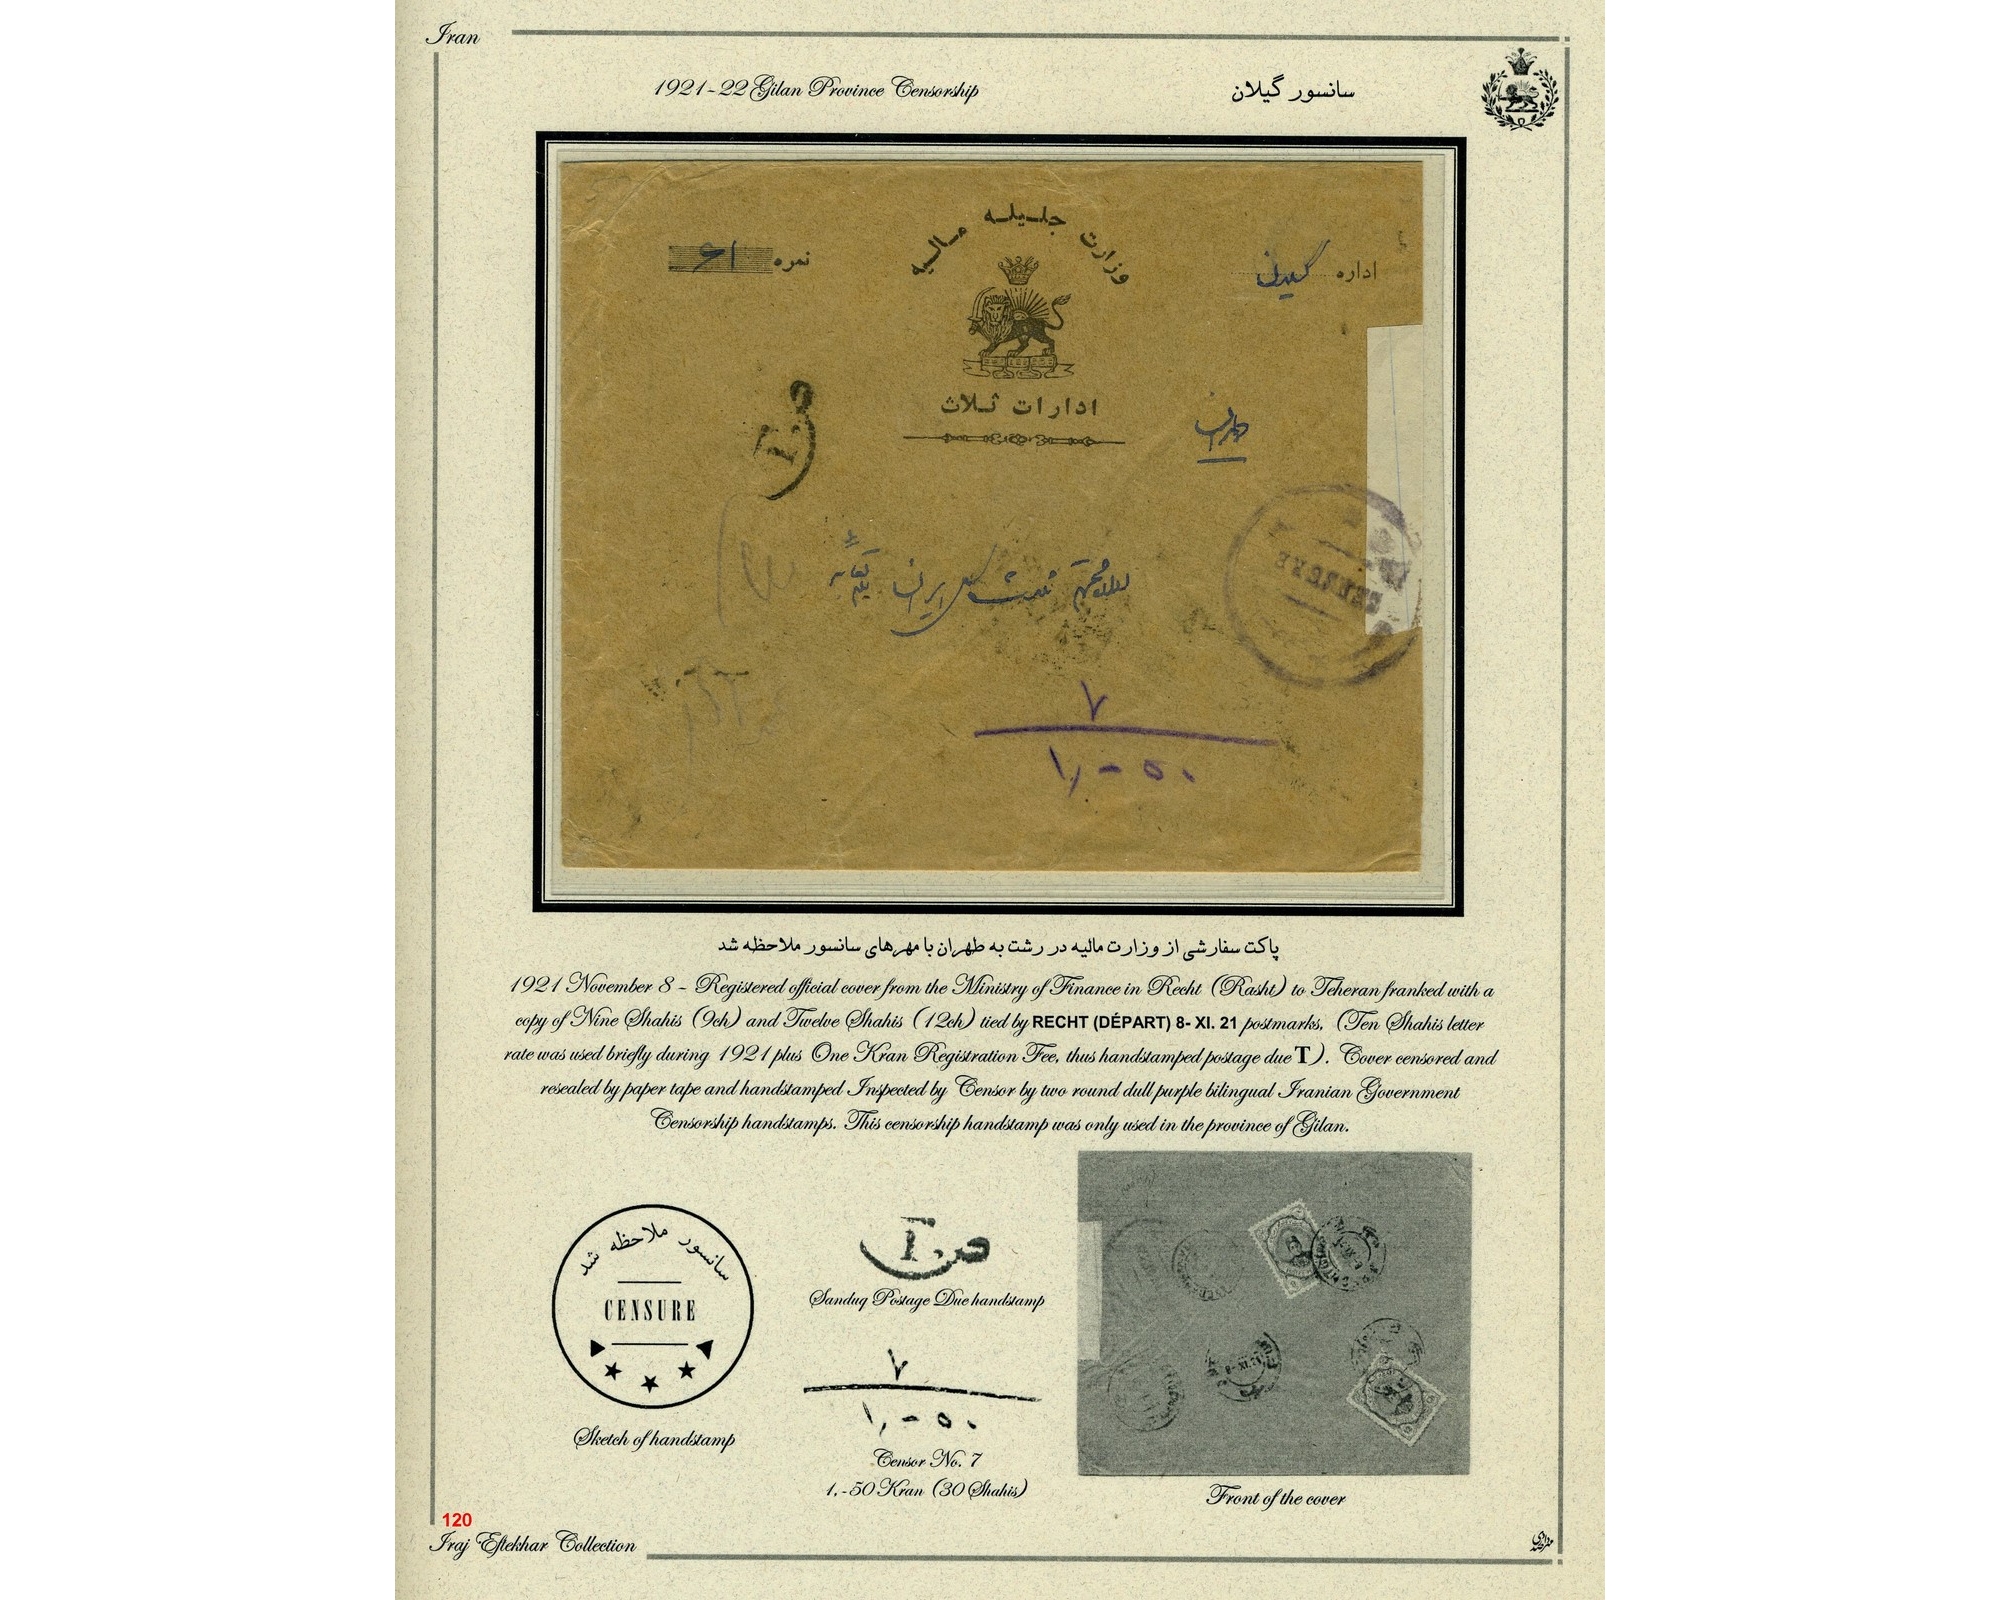 Iran
1921-22 Gilan Province Censorship
سانسور گیلان
وزارت جلیله مالیه
نمره ۶۱
اداره گیلان
ادارات ثلاث
طهران
T.
CENSURE
۷
۱,-۵۰
پاکت سفارشی از وزارت مالیه در رشت به طهران با مهرهای سانسور ملاحظه شد
1921 November 8 - Registered official cover from the Ministry of Finance in Recht (Rasht) to Teheran franked with a
copy of Nine Shahis (9ch) and Twelve Shahis (12ch) tied by RECHT (DÉPART) 8- XI. 21 postmarks, (Ten Shahis letter
rate was used briefly during 1921 plus One Kran Registration Fee, thus handstamped postage due T). Cover censored and
resealed by paper tape and handstamped Inspected by Censor by two round dull purple bilingual Iranian Government
Censorship handstamps. This censorship handstamp was only used in the province of Gilan.
سانسور ملاحظه شد
CENSURE
Sketch of handstamp
T.
Sanduq Postage Due handstamp
۷
۱,-۵۰
Censor No. 7
1,-50 Kran (30 Shahis)
8-XI.21
Front of the cover
120
Iraj Eftekhar Collection